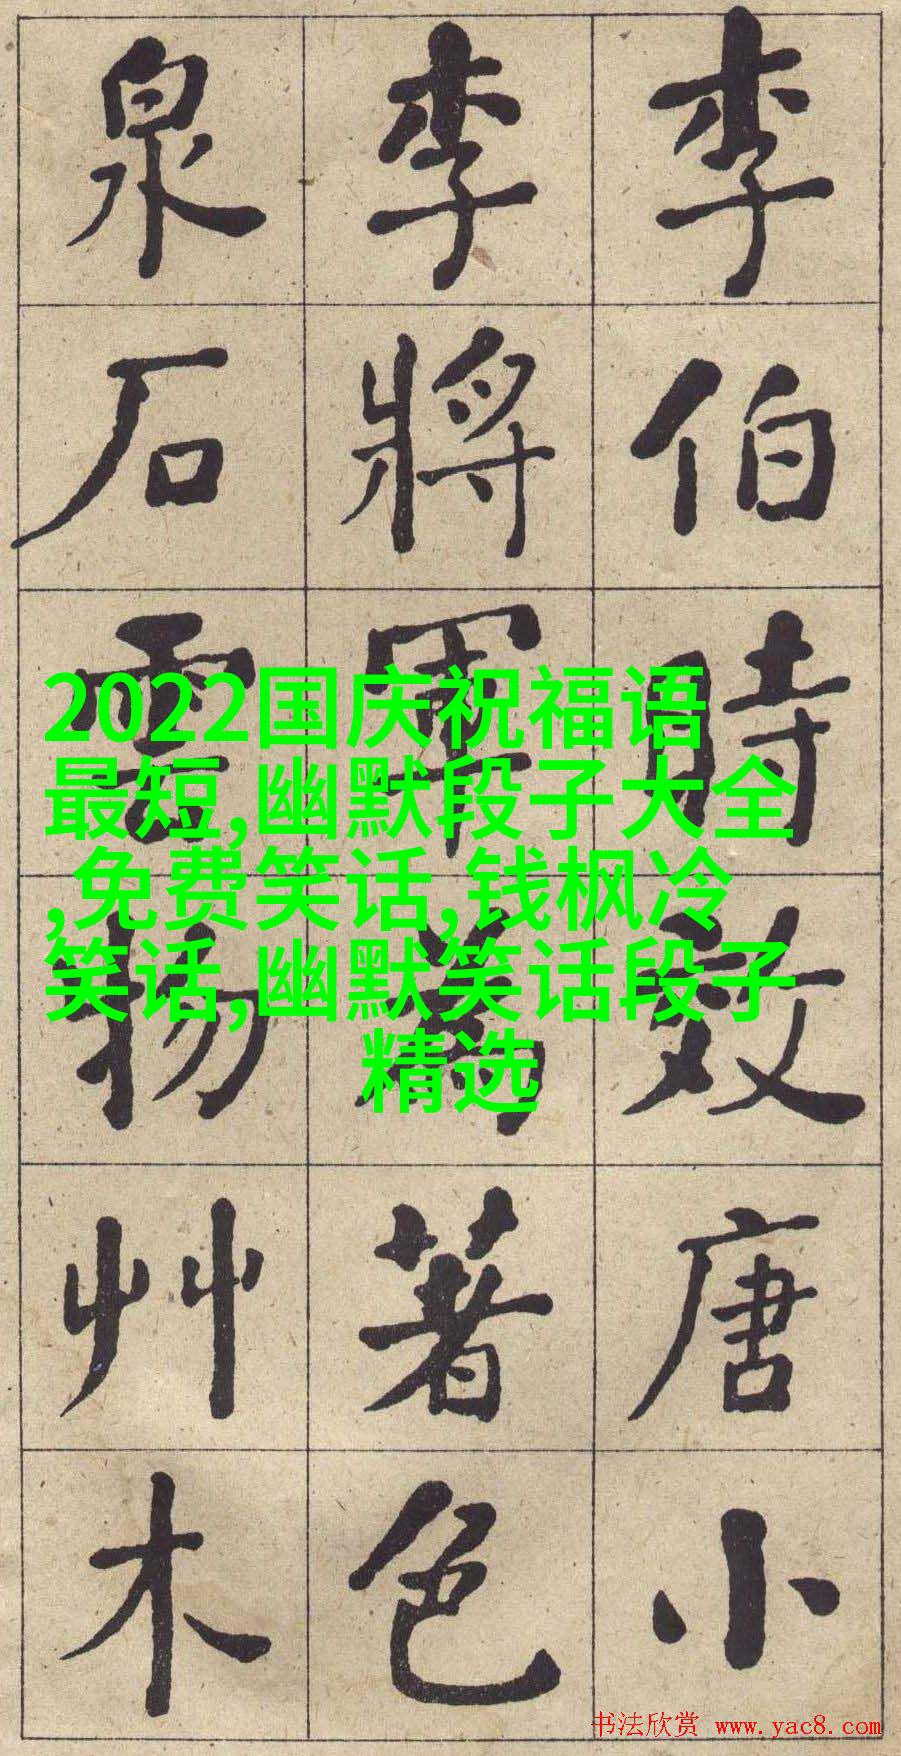 李伯時效唐小
李將軍爲著色
泉石雲物艸木
2022国庆祝福语
最短,幽默段子大全
,免费笑话,钱枫冷
笑话,幽默笑话段子
精选
书法欣赏 www.yac8.com